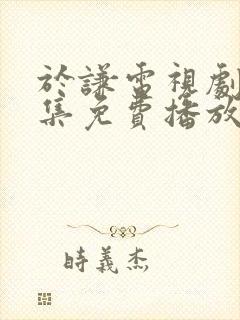 於謙電視劇
集免費播放
時義杰